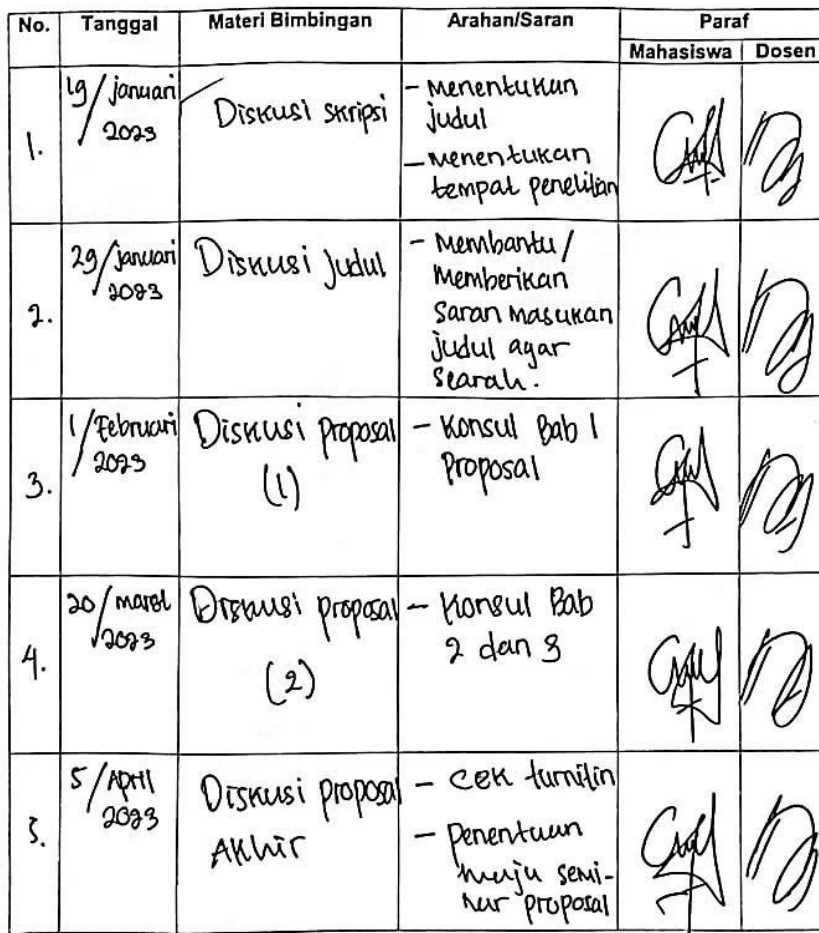 No. Tanggal Materi Bimbingan Arahan/Saran Paraf
Mahasiswa Dosen
1. 19/januari 2023 Diskusi skripsi - Menentukan
judul
- Menentukan
tempat penelitian
2. 29/januari 2023 Diskusi judul - Membantu/
Memberikan
saran masukan
judul agar
searah.
3. 1/Februari 2023 Diskusi proposal (1) - Konsul Bab 1
Proposal
4. 20/maret 2023 Diskusi proposal (2) - Konsul Bab
2 dan 3
5. 5/April 2023 Diskusi proposal Akhir - cek turnitin
- penentuan
maju semi-
nar proposal